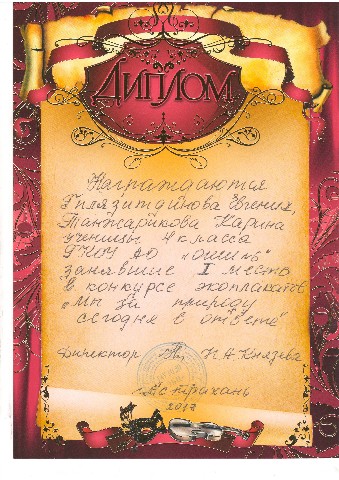 ДИПЛОМ
Награждаются
Гилязитдинова Евгения,
Танжарикова Карина
ученицы 4 класса
занявшие I место
в конкурсе экоплакатов
„Мы за природу
сегодня в ответе"
Директор Н.А Князева
Астрахань
2017